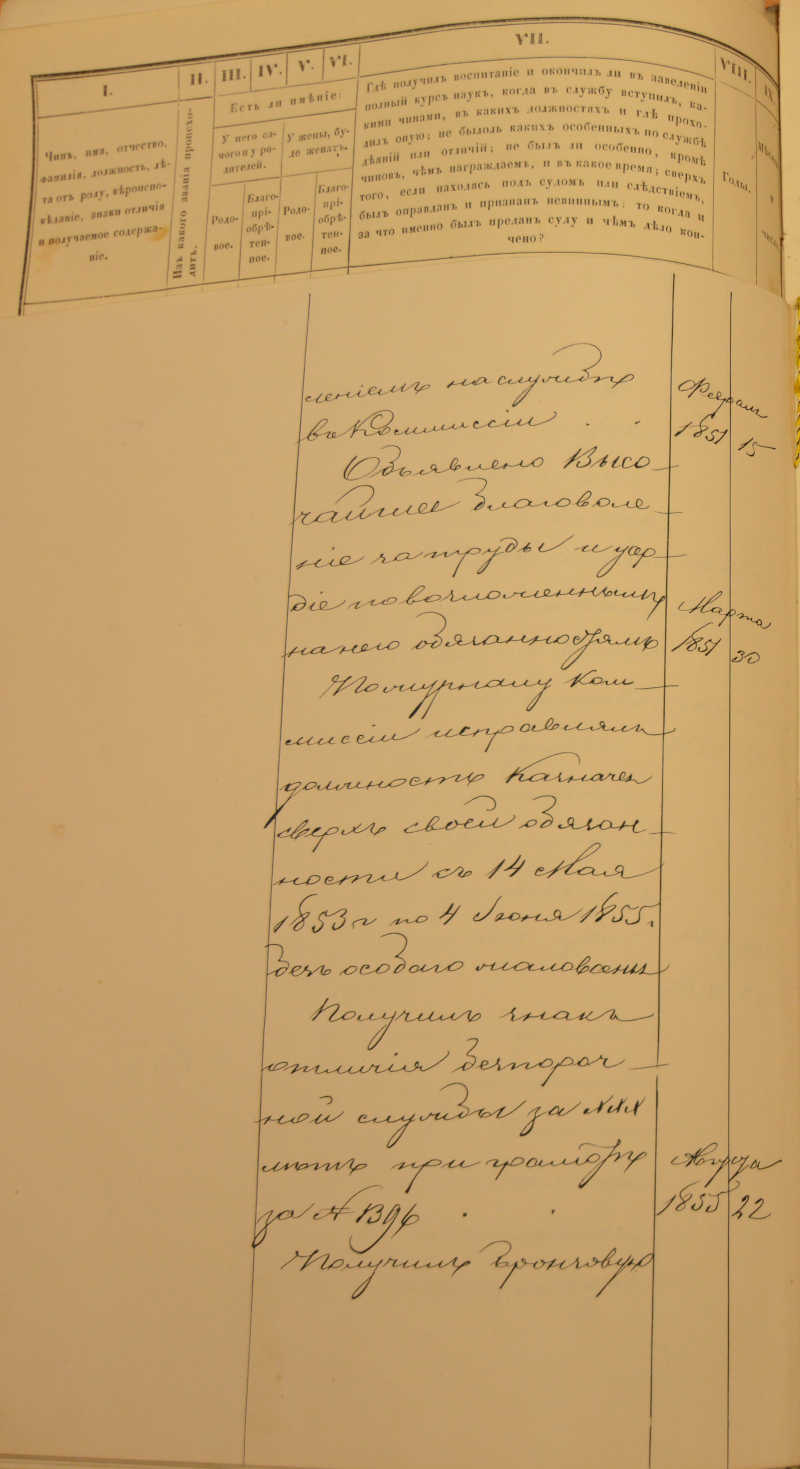 I.
II.
III.
IV.
V.
VI.
VII.
VIII.
IX
Чинъ, имя, отчество,
фамилія, должность, лѣ-
та отъ роду, вѣроиспо-
вѣданіе, знаки отличія
и получаемое содержа-
ніе.
Изъ какого званія происхо-
дитъ.
Есть ли имѣніе:
У него са-
мого и у ро-
дителей.
У жены, бу-
де женатъ.
Родо-
вое.
Благо-
прі-
обрѣ-
тен-
ное.
Родо-
вое.
Благо-
прі-
обрѣ-
тен-
ное.
Гдѣ получилъ воспитаніе и окончилъ ли въ заведеніи
полный курсъ наукъ, когда въ службу вступилъ, ка-
кими чинами, въ какихъ должностяхъ и гдѣ прохо-
дилъ оную; не былоль какихъ особенныхъ по службѣ
дѣяній или отличій; не былъ ли особенно, кромѣ
чиновъ, чѣмъ награждаемъ, и въ какое время; сверхъ
того, если находясь подъ судомъ или слѣдствіемъ,
былъ оправданъ и признанъ невиннымъ: то когда и
за что именно былъ преданъ суду и чѣмъ дѣло кон-
чено?
Годы.
леніемъ на службу
въ Коммиссіи
Феврал
1851 15
Объявлено Высо
чайшее благоволе
ніе за труды и усер
діе по возложеннымъ
на него обязанностямъ
Марта
1851 30
По журналу Ком
миссіи исправлялъ
должность Казначея
сверхъ своей обязан
ности съ 14 Мая
1853 г по 4 Іюня 1855.
безъ особаго жалованья
Получилъ знакъ
отличія безпороч
ной службы за XXX
лѣтъ при грамотѣ
за №
Августа
1855 22
Получилъ бронзовую